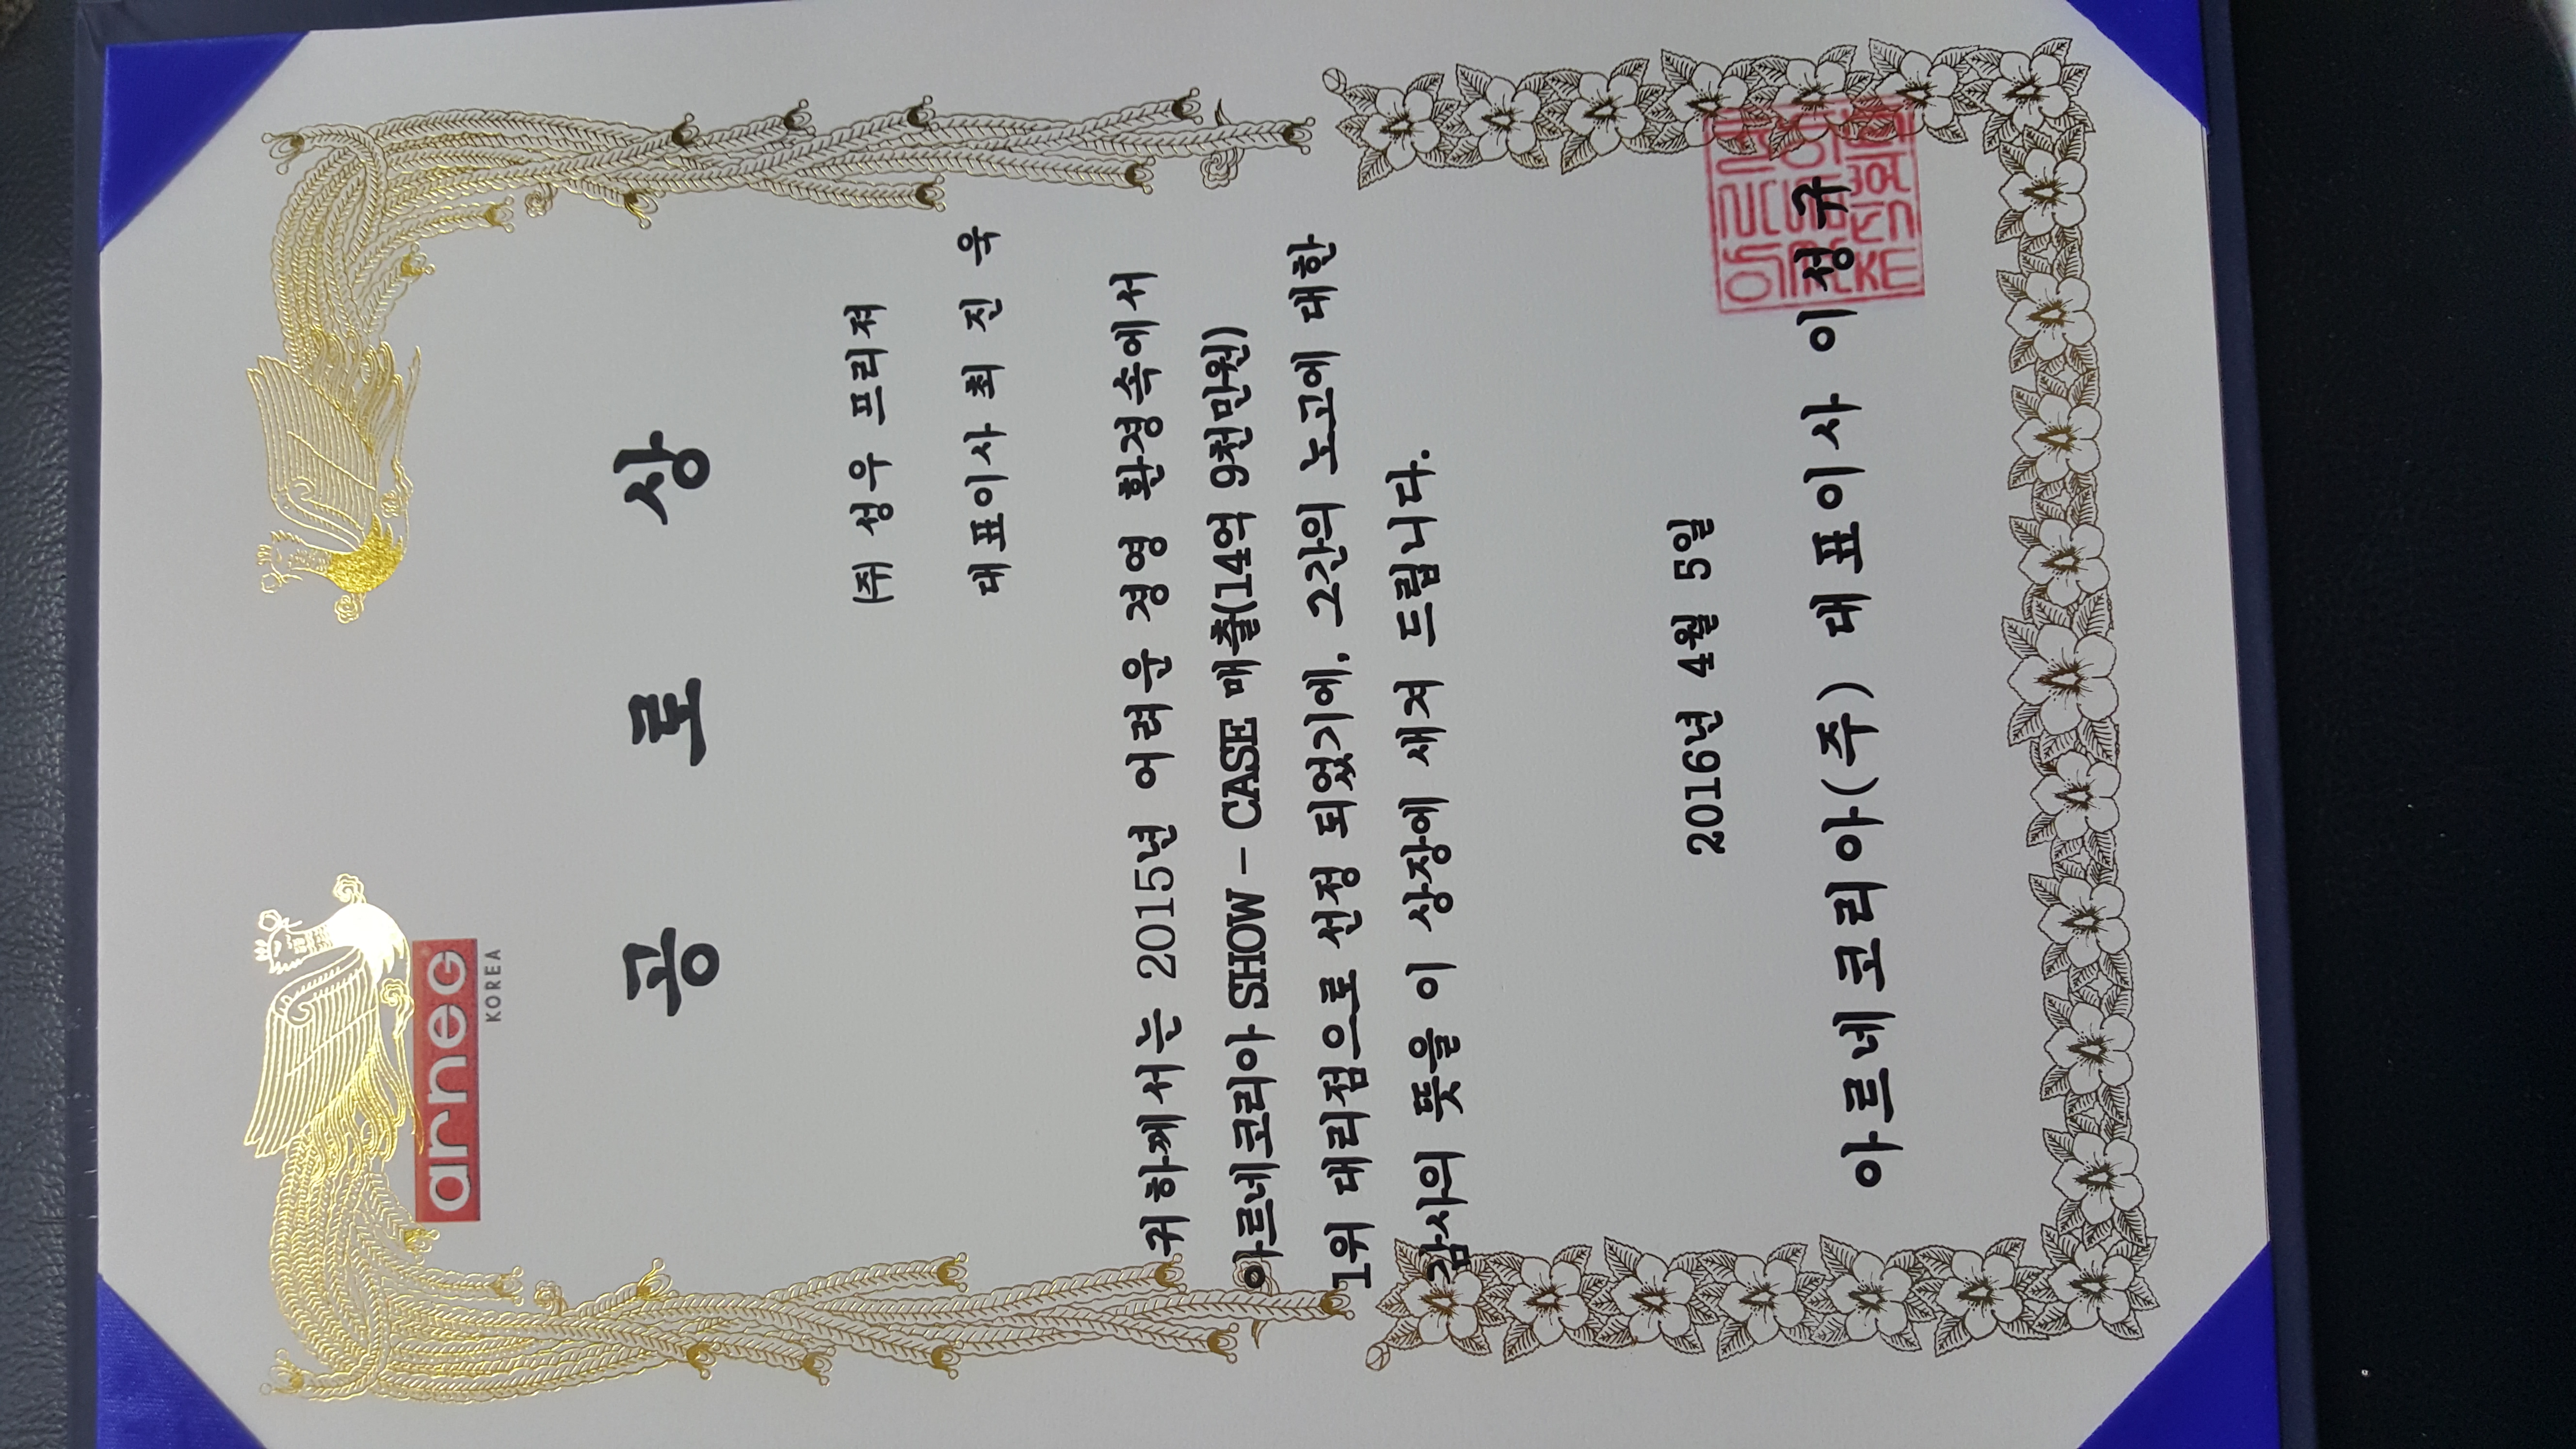 arneg
KOREA
공 로 상
(주) 성우 프리져
대표이사 최 진 욱
귀하께서는 2015년 어려운 경영 환경속에서
아르네코리아 SHOW - CASE 매출(14억 9천만원)
1위 대리점으로 선정 되었기에, 그간의 노고에 대한
감사의 뜻을 이 상장에 새겨 드립니다.
2016년 4월 5일
아르네코리아(주) 대표이사 이성규